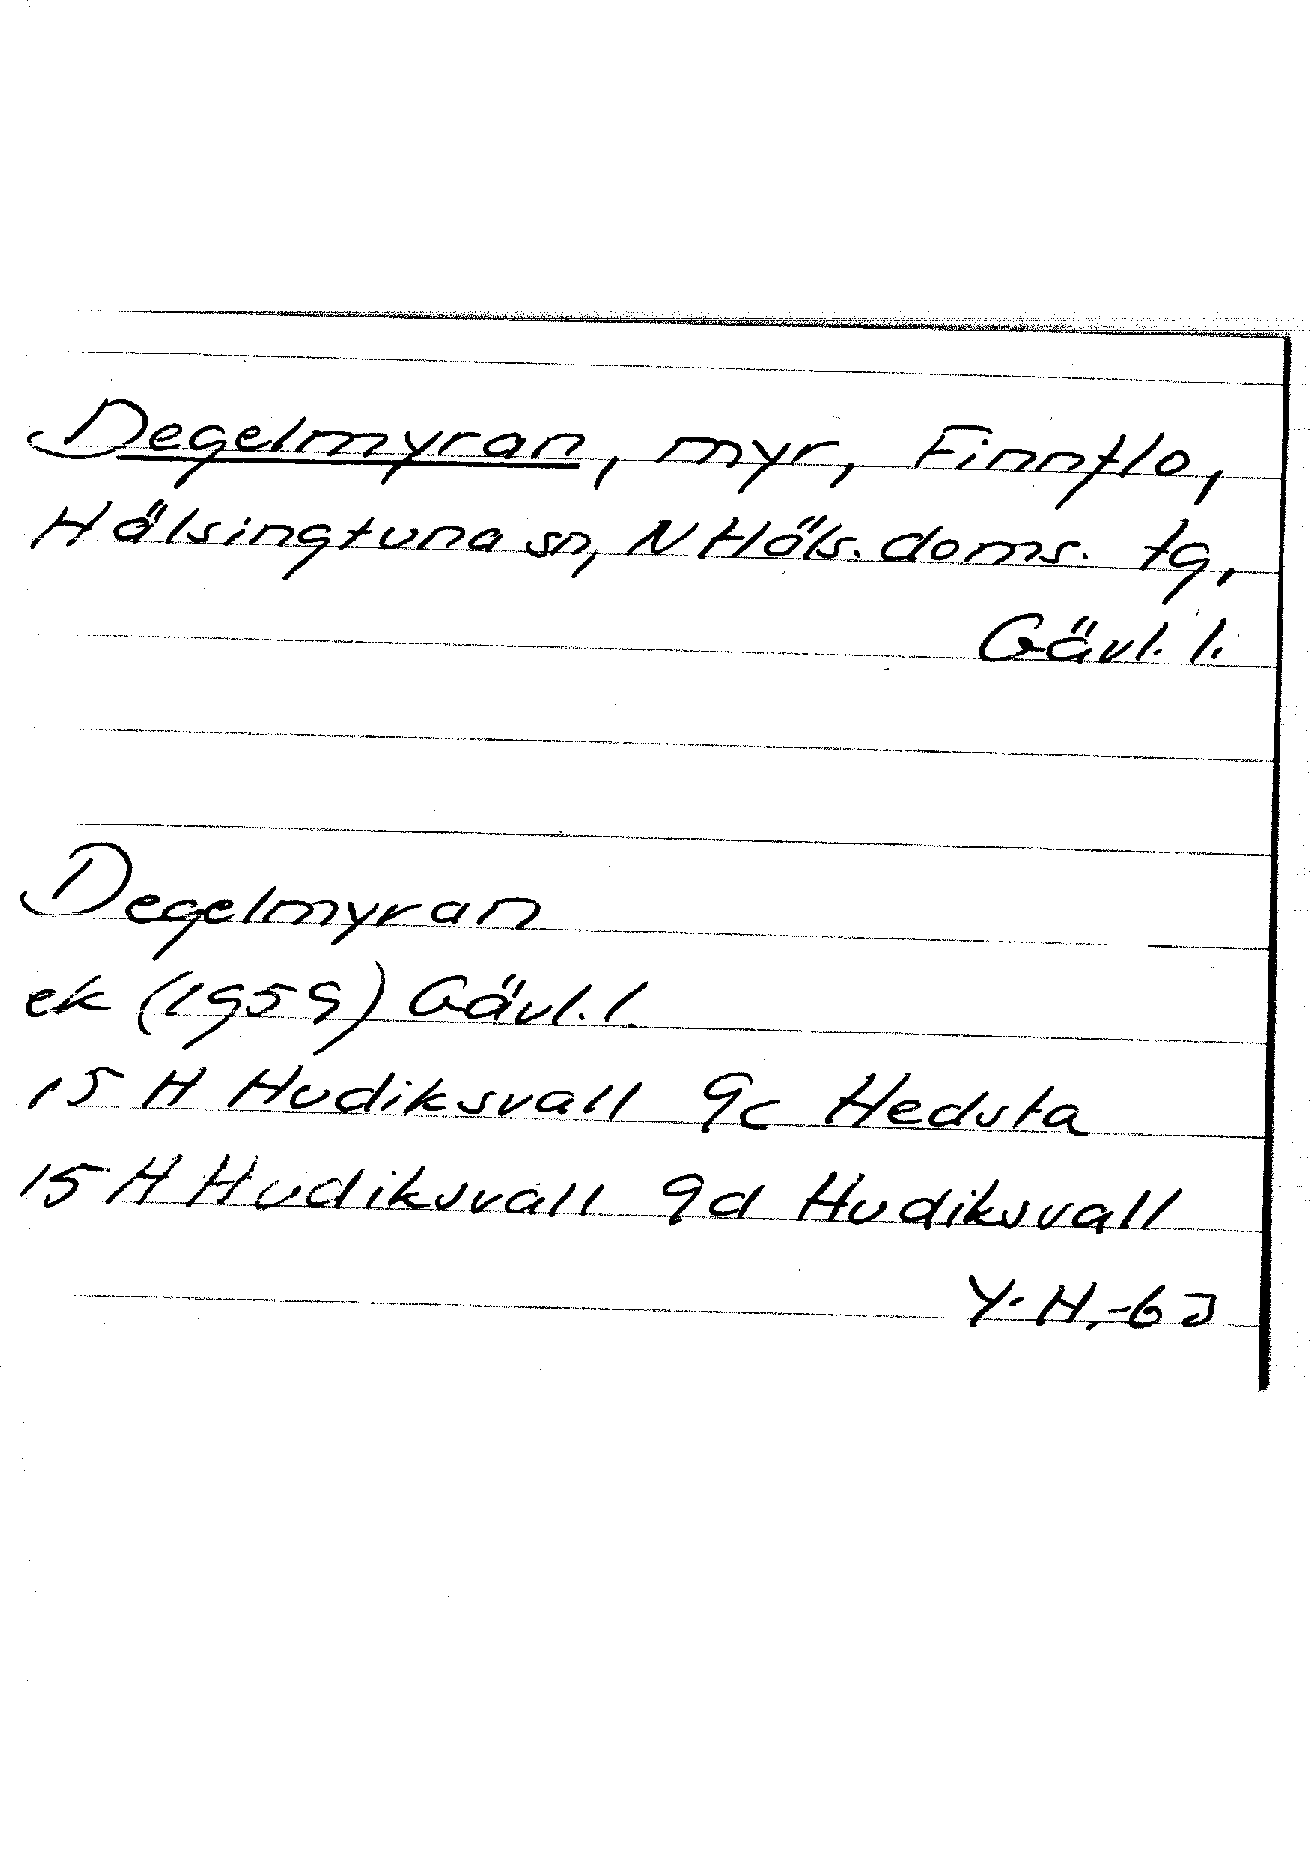 Degelmyran, myr, Finnflo,
Hälsingtuna sn, N Häls. doms. tg,
Gävl. l.
Degelmyran
ek (1959) Gävl. l.
15 H Hudiksvall 9c Hedsta
15 H Hudiksvall 9d Hudiksvall
Y. H, -63